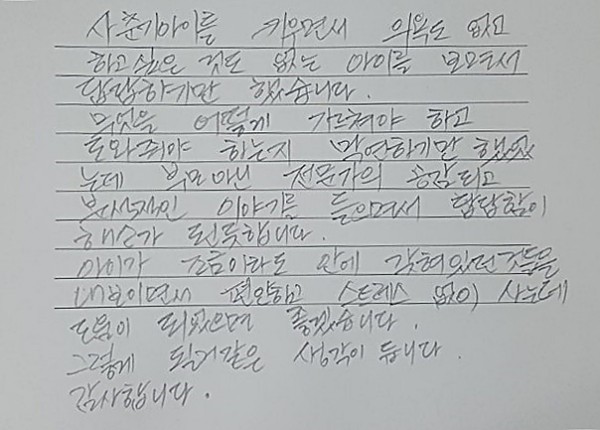 사춘기아이를 키우면서 의욕도 없고
하고싶은 것도 없는 아이를 보면서
답답하기만 했습니다.
무엇을 어떻게 가르쳐야 하고
도와줘야 하는지 막연하기만 했었
는데 부모아닌 전문가의 공감되고
이야기를 들으면서 답답함이
해소가 된듯합니다.
아이가 조금이라도 안에 갖혀있던것들을
내보이면서 편안하고 스트레스 없이 사는데
도움이 되었으면 좋겠습니다.
그렇게 될거같은 생각이 듭니다.
감사합니다.